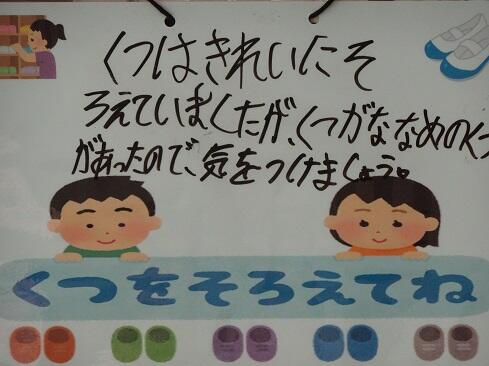 くつはきれいにそ
ろえていましたが、くつがななめのくつ
があったので、気をつけましょう。
くつをそろえてね